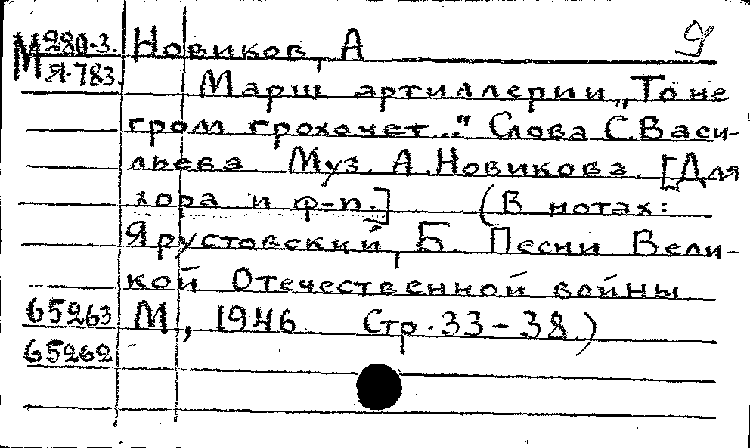 М 280-3. Новиков, А 9
Я-783. Марш артиллерии „То не
гром грохочет..." Слова С.Васи-
льева Муз. А.Новикова. [Для
хора и ф-п.] (В нотах:
Ярустовский, Б. Песни Вели-
кой Отечественной войны
65263 М, 1946 Стр.33-38)
65262